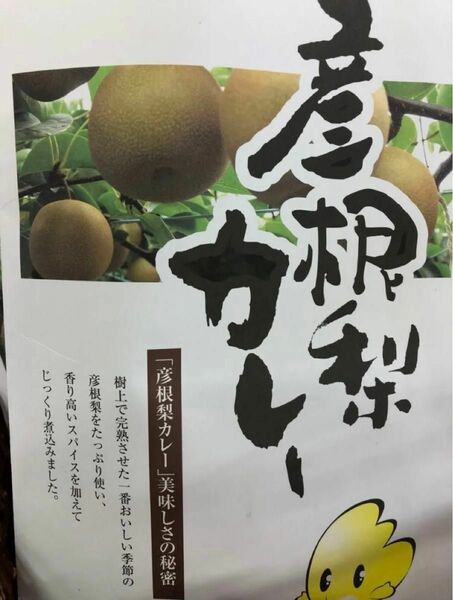 彦根梨
カレー
「彦根梨カレー」美味しさの秘密
樹上で完熟させた一番おいしい季節の
彦根梨をたっぷり使い、
香り高いスパイスを加えて
じっくり煮込みました。